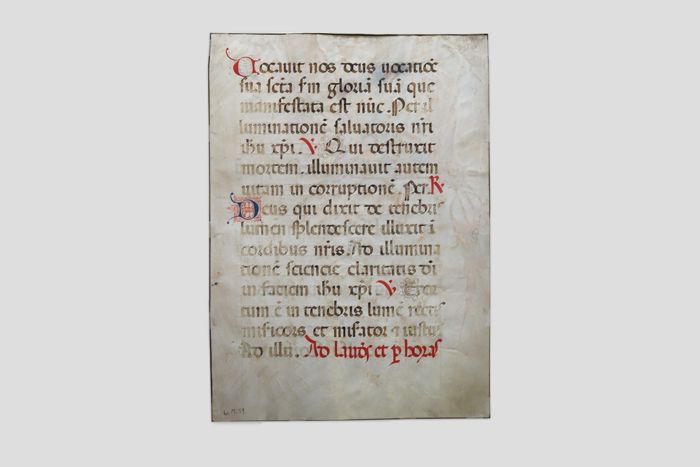 Vocavit nos deus vocatiōe
sua sc̄ta fm gloriā suā que
manifestata est nūc. Per il
luminationē salvatoris nr̄i
ihu xp̄i. ℣ Qui destruxit
mortem. illuminavit autem
vitam in corruptionē. Per. ℟
Deus qui dixit de tenebris
lumen splendescere illuxit ī
cordibus nr̄is. Ad illumina
tionē sciencie claritatis dī
in faciem ihu xp̄i ℣ Exor
tum ē in tenebris lumē rectis
misīcors et misator ⁊ iustus
Ad illu. Ad laudes et ꝑ horas